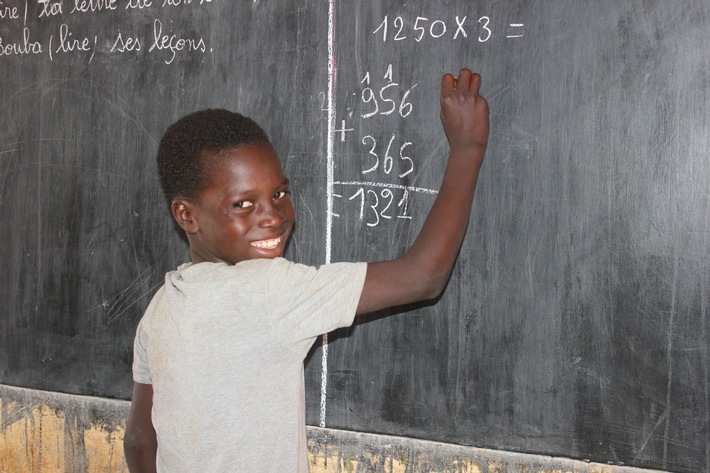 lire) la lettre de
Bouba (lire) ses leçons.
1250 x 3 =
1 1
956
+
365
= 1321